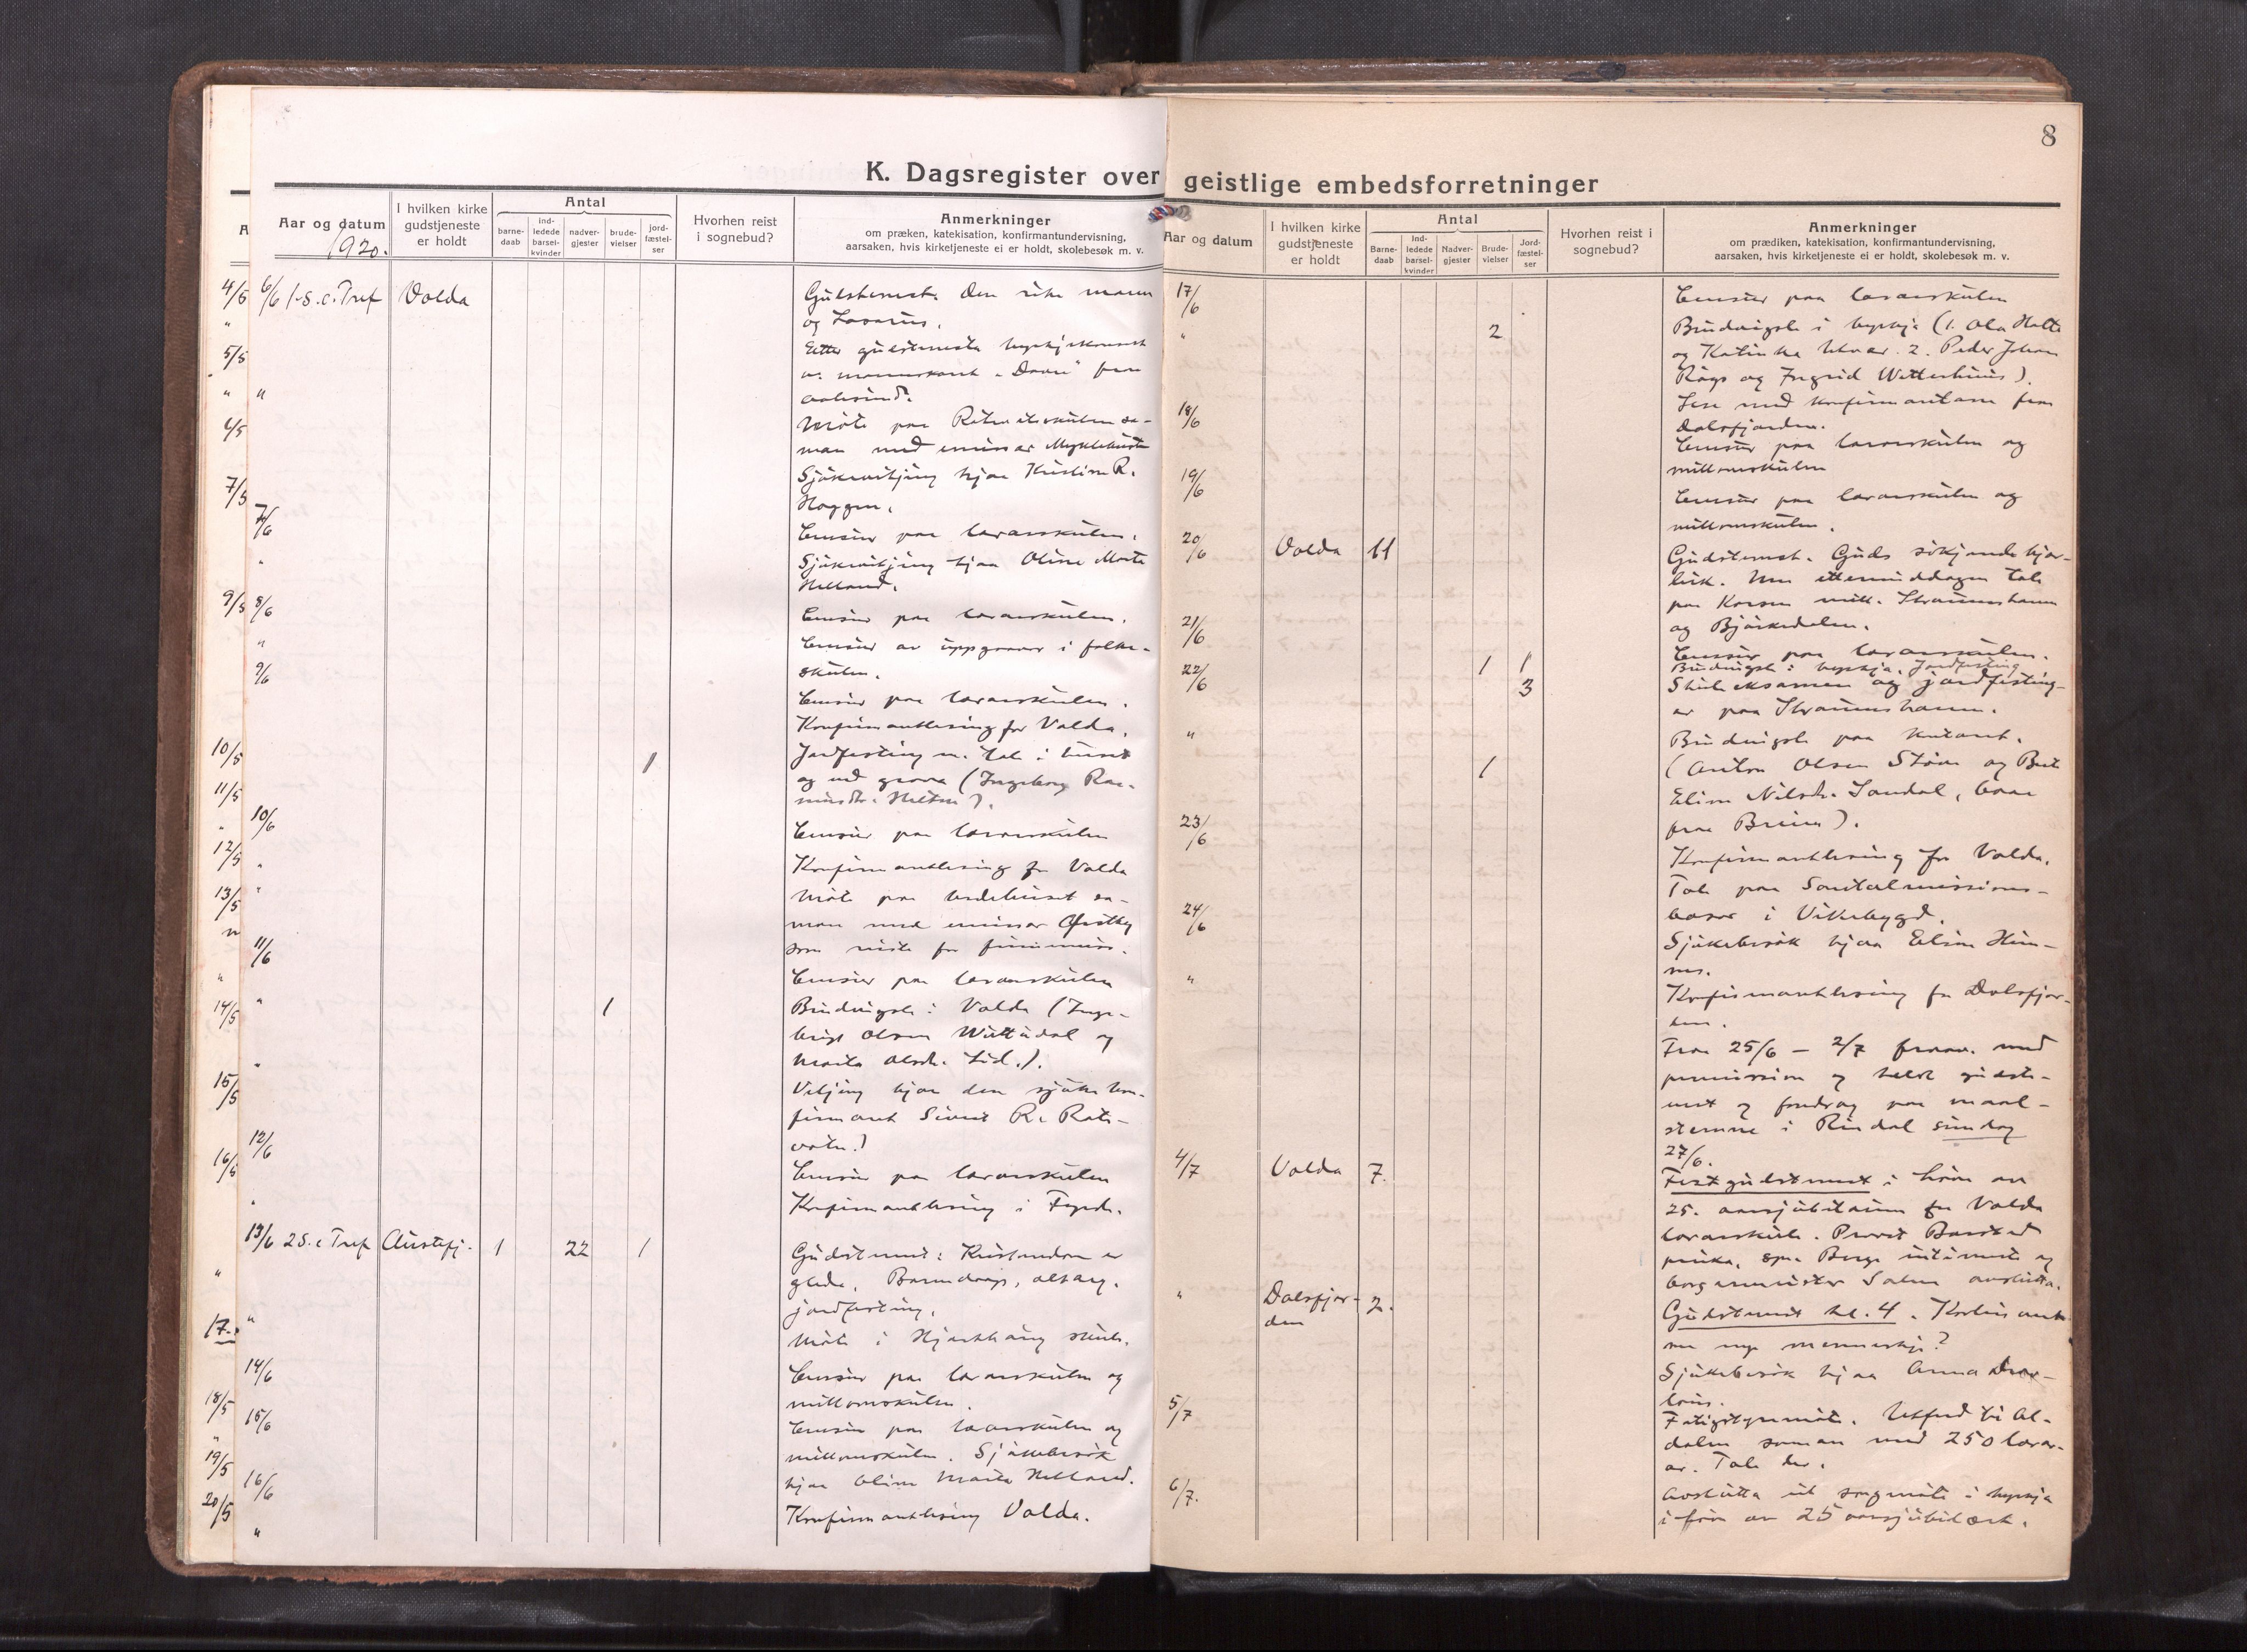 8
K. Dagsregister over geistlige embedsforretninger
Aar og datum
1920.
I hvilken kirke
gudstjeneste
er holdt
Antal
barne-
daab
ind-
ledede
barsel-
kvinder
nadver-
gjester
brude-
vielser
jord-
fæstel-
ser
Hvorhen reist
i sognebud?
Anmerkninger
om præken, katekisation, konfirmantundervisning,
aarsaken, hvis kirketjeneste ei er holdt, skolebesøk m. v.
4/5
"
5/5
" "
6/5
7/5
9/5
10/5
11/5
"
12/5
13/5
"
14/5
15/5
16/5
"
17
18/5
"
19/5
20/5
6/6 1. S. e. Tref Volda
Gudstenest. Den rike mann
og Lasarus.
Etter gudstenesta kyrkjekonsert
av mannskoret "Daru" fraa
Aalesund.
Møte paa sa-
man med emissær Myklebust
Sjukevitjing hjaa Kristine R.
Haggen.
7/6
Censur paa lærarskulen.
"
Sjukevitjing hjaa Oline Marte
Helland.
8/6
Censur paa lærarskulen.
"
Censur av uppgaavor i folke-
skulen.
9/6
Censur paa lærarskulen.
Konfirmantlesing for Volda.
1
Jordfesting m. tale i huset
og ved grava (Ingeborg Ras-
musdtr. ).
10/6
Censur paa lærarskulen
"
Konfirmantlesing for Volda
"
Møte paa bedehuset sa-
man med emissær Østby
som reiste for finnemiss.
11/6
Censur paa lærarskulen
"
1
Brudvigsle i Volda (Inge-
brigt Olsen og
Marta Olsdtr. Lid.).
"
Vitjing hjaa den sjuke kon-
firmant Sivert R. Rots-
12/6
Censur paa lærarskulen
"
Konfirmantlesing i Fyrde.
13/6 2 S. e Tref Austefj. 1 22 1
Gudstenest: Kristendom er
glede. Barnedaap, altarg.
jordfesting.
"
Møte i skule.
14/6
Censur paa lærarskulen og
millomskulen.
15/6
Censur paa lærarskulen og
millomskulen. Sjukebesøk
hjaa Oline Marte Helland.
16/6
"
Konfirmantlesing Volda.
Aar og datum
I hvilken kirke
gudstjeneste
er holdt
Antal
Barne-
daab
Ind-
ledede
barsel-
kvinder
Nadver-
gjester
Brude-
vielser
Jord-
fæstel-
ser
Hvorhen reist i
sognebud?
Anmerkninger
om prædiken, katekisation, konfirmantundervisning,
aarsaken, hvis kirketjeneste ei er holdt, skolebesøk m. v.
17/6
Censur paa lærarskulen
"
2
Brudvigsle i kyrkja (1. Ola Holte
og Katinka 2. Peder Johan
og Ingrid Watterhuus).
18/6
Lese med konfirmantane fraa
Dalsfjorden.
Censur paa lærarskulen og
millomskulen
19/6
Censur paa lærarskulen og
millomskulen.
20/6 Volda 11
Gudstenest. Guds søkjande kjær-
leik. Um ettermiddagen tale
paa Korsen mill. Straumshamn
og Bjørkedalen.
21/6
Censur paa lærarskulen.
1 1
Brudvigsle i kyrkja. Jordfesting
22/6
3
Skuleeksamen og jordfesting-
er paa Straumshamn.
"
1
Brudvigsle paa kontoret.
(Anton Olsen Støva og Berte
Eline Nilsdtr. Sandal, baae
fraa Breim).
23/6
Konfirmantlesing for Volda.
Tale paa Santalmissions-
basar i Vikebygd.
24/6
Sjukebesøk hjaa Eline Hum-
nes.
"
Konfirmantlesing fr Dalsfjor-
den.
Fraa 25/6 – 2/7 fraav. med
permission og heldt gudste-
nest og foredrag paa maal-
stemne i Rindal sundag
27/6.
4/7 Volda 7.
Festgudstenest i høve av
25. aarsjubilæum for Volda
lærarskule. Prost Barsted
preika, spr. Berge intimerte og
borgermeister Salen avslutta.
" Dalsfjor-
den 2.
Gudstenest kl. 4. Korleis vert
me nye menneskje?
Sjukebesøk hjaa Anna Drav-
laus.
5/7
Fatigstyremøte. Utferd til Al-
dalen saman med 250 lærar-
ar. Tale der.
6/7.
Avslutta eit songmøte i kyrkja
i høve av 25 aarsjubilæet.